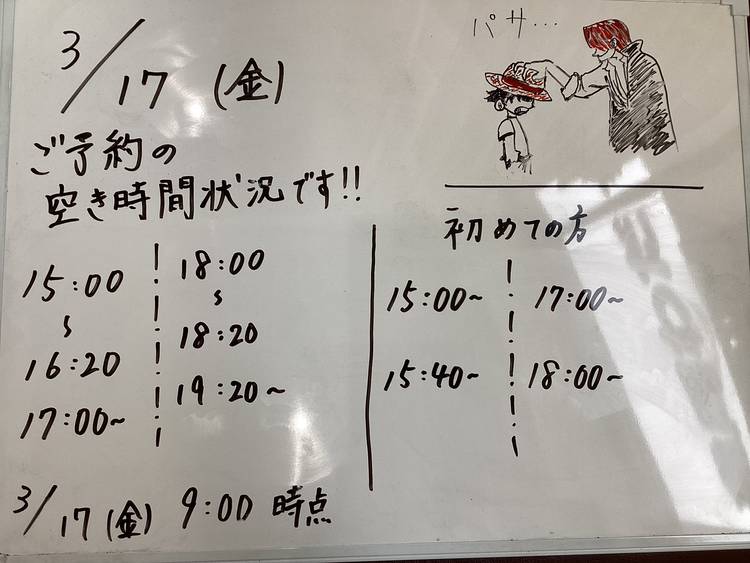 3/17(金)
パサ…
ご予約の
空き時間状況です!!
15:00
〜
16:20
17:00~
18:00
〜
18:20
19:20~
初めての方
15:00~
15:40~
17:00~
18:00~
3/17(金) 9:00 時点